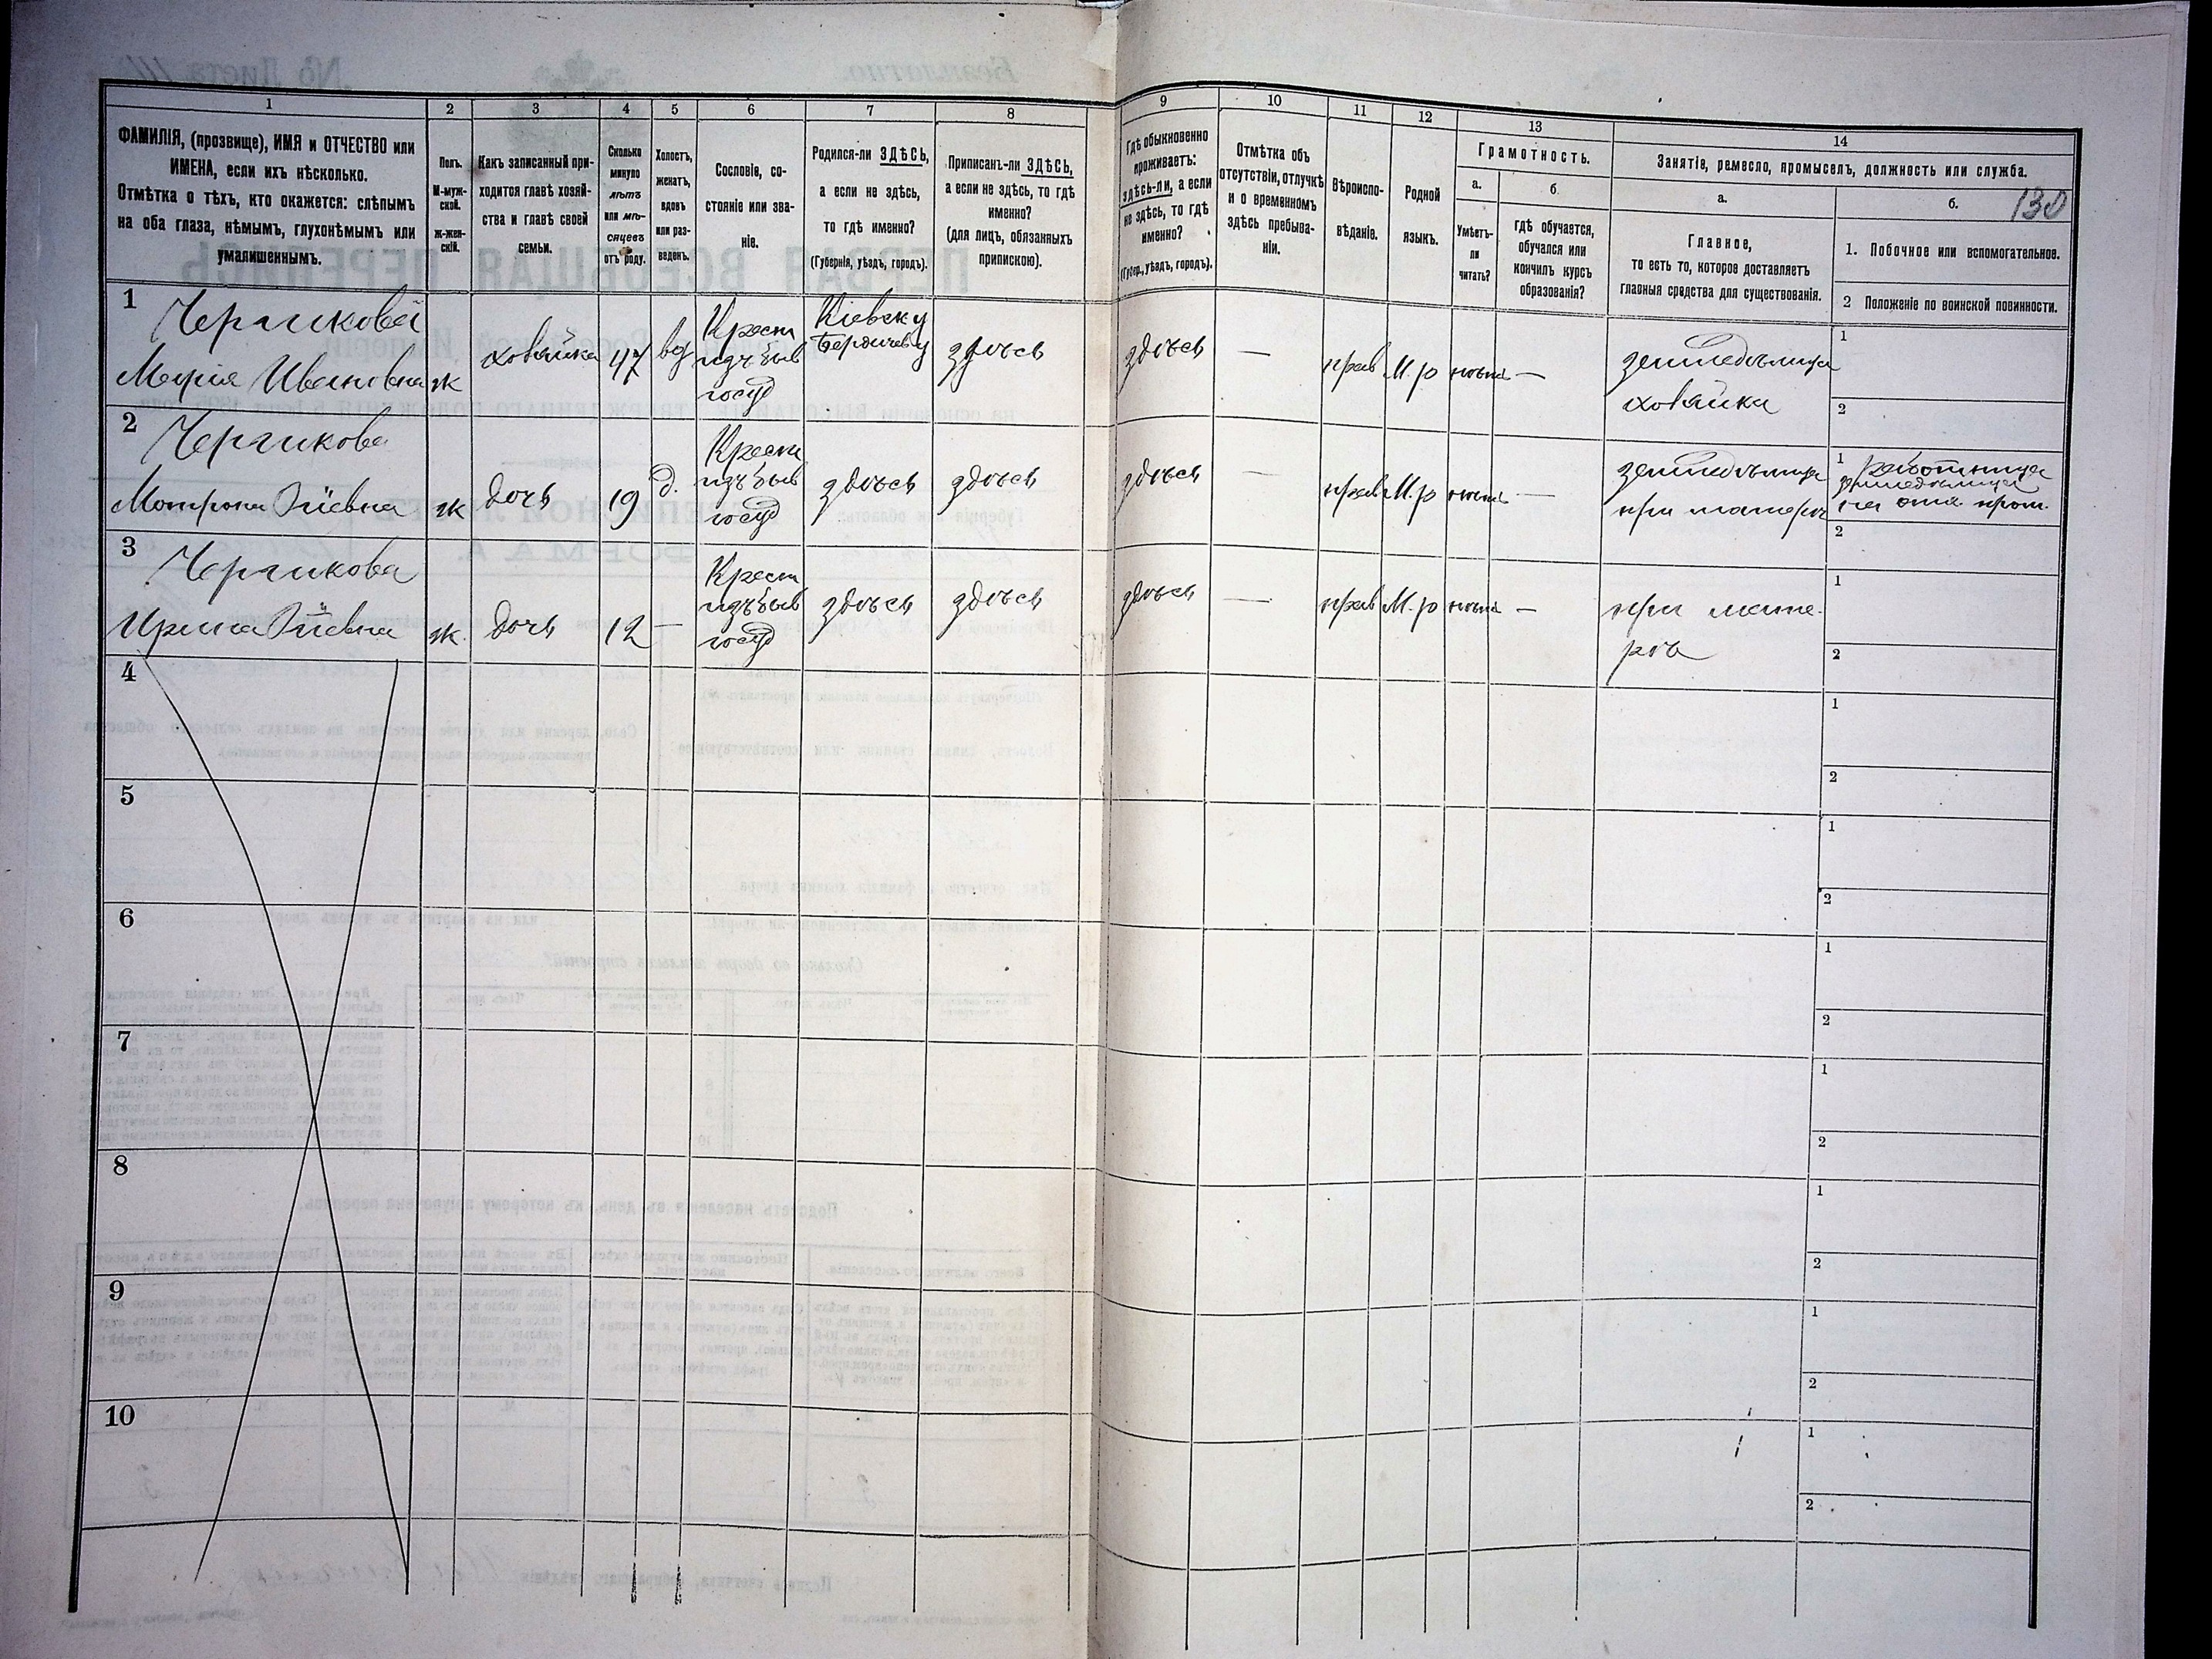 1
2
3
4
5
6
7
8
9
10
11
12
13
14
ФАМИЛІЯ, (прозвище), ИМЯ и ОТЧЕСТВО или
ИМЕНА, если ихъ нѣсколько.
Отмѣтка о тѣхъ, кто окажется: слѣпымъ
на оба глаза, нѣмымъ, глухонѣмымъ или
умалишеннымъ.
Полъ.
М-муж-
ской.
Ж-жен-
скій.
Какъ записанный при-
ходится главѣ хозяй-
ства и главѣ своей
семьи.
Сколько
минуло
лѣтъ
или мѣ-
сяцевъ
отъ роду.
Холостъ,
женатъ,
вдовъ
или раз-
веденъ.
Сословіе, со-
стояніе или зва-
ніе.
Родился-ли ЗДѢСЬ,
а если не здѣсь,
то гдѣ именно?
(Губернія, уѣздъ, городъ).
Приписанъ-ли ЗДѢСЬ,
а если не здѣсь, то гдѣ
именно?
(для лицъ, обязанныхъ
припискою).
Гдѣ обыкновенно
проживаетъ:
здѣсь-ли, а если
не здѣсь, то гдѣ
именно?
(Губер., уѣздъ, городъ).
Отмѣтка объ
отсутствіи, отлучкѣ
и о временномъ
здѣсь пребыва-
ніи.
Вѣроиспо-
вѣданіе.
Родной
языкъ.
Грамотность.
а.
Умѣетъ-
ли
читать?
б.
гдѣ обучается,
обучался или
кончилъ курсъ
образованія?
Занятіе, ремесло, промыселъ, должность или служба.
а.
Главное,
то есть то, которое доставляетъ
главныя средства для существованія.
б.
130
1. Побочное или вспомогательное.
2 Положеніе по воинской повинности.
1
Марія Ивановна
ж
хозяйка
47
вд
Крест
изъ быв
госуд
Кіевск у
Бердичев у
здѣсь
здѣсь
—
прав
М.р
—
земледѣлица
хозяйка
1
2
2
Матрона
ж
дочь
19
д.
Крест
изъ быв
госуд
здѣсь
здѣсь
здѣсь
—
прав
М.р
—
земледѣлица
при матери
1
2
3
Ирина
ж.
дочь
12
—
Крест
изъ быв
госуд
здѣсь
здѣсь
здѣсь
—
прав
М.р
—
при мате-
рѣ
1
2
4
1
2
5
1
2
6
1
2
7
1
2
8
1
2
9
1
2
10
1
2